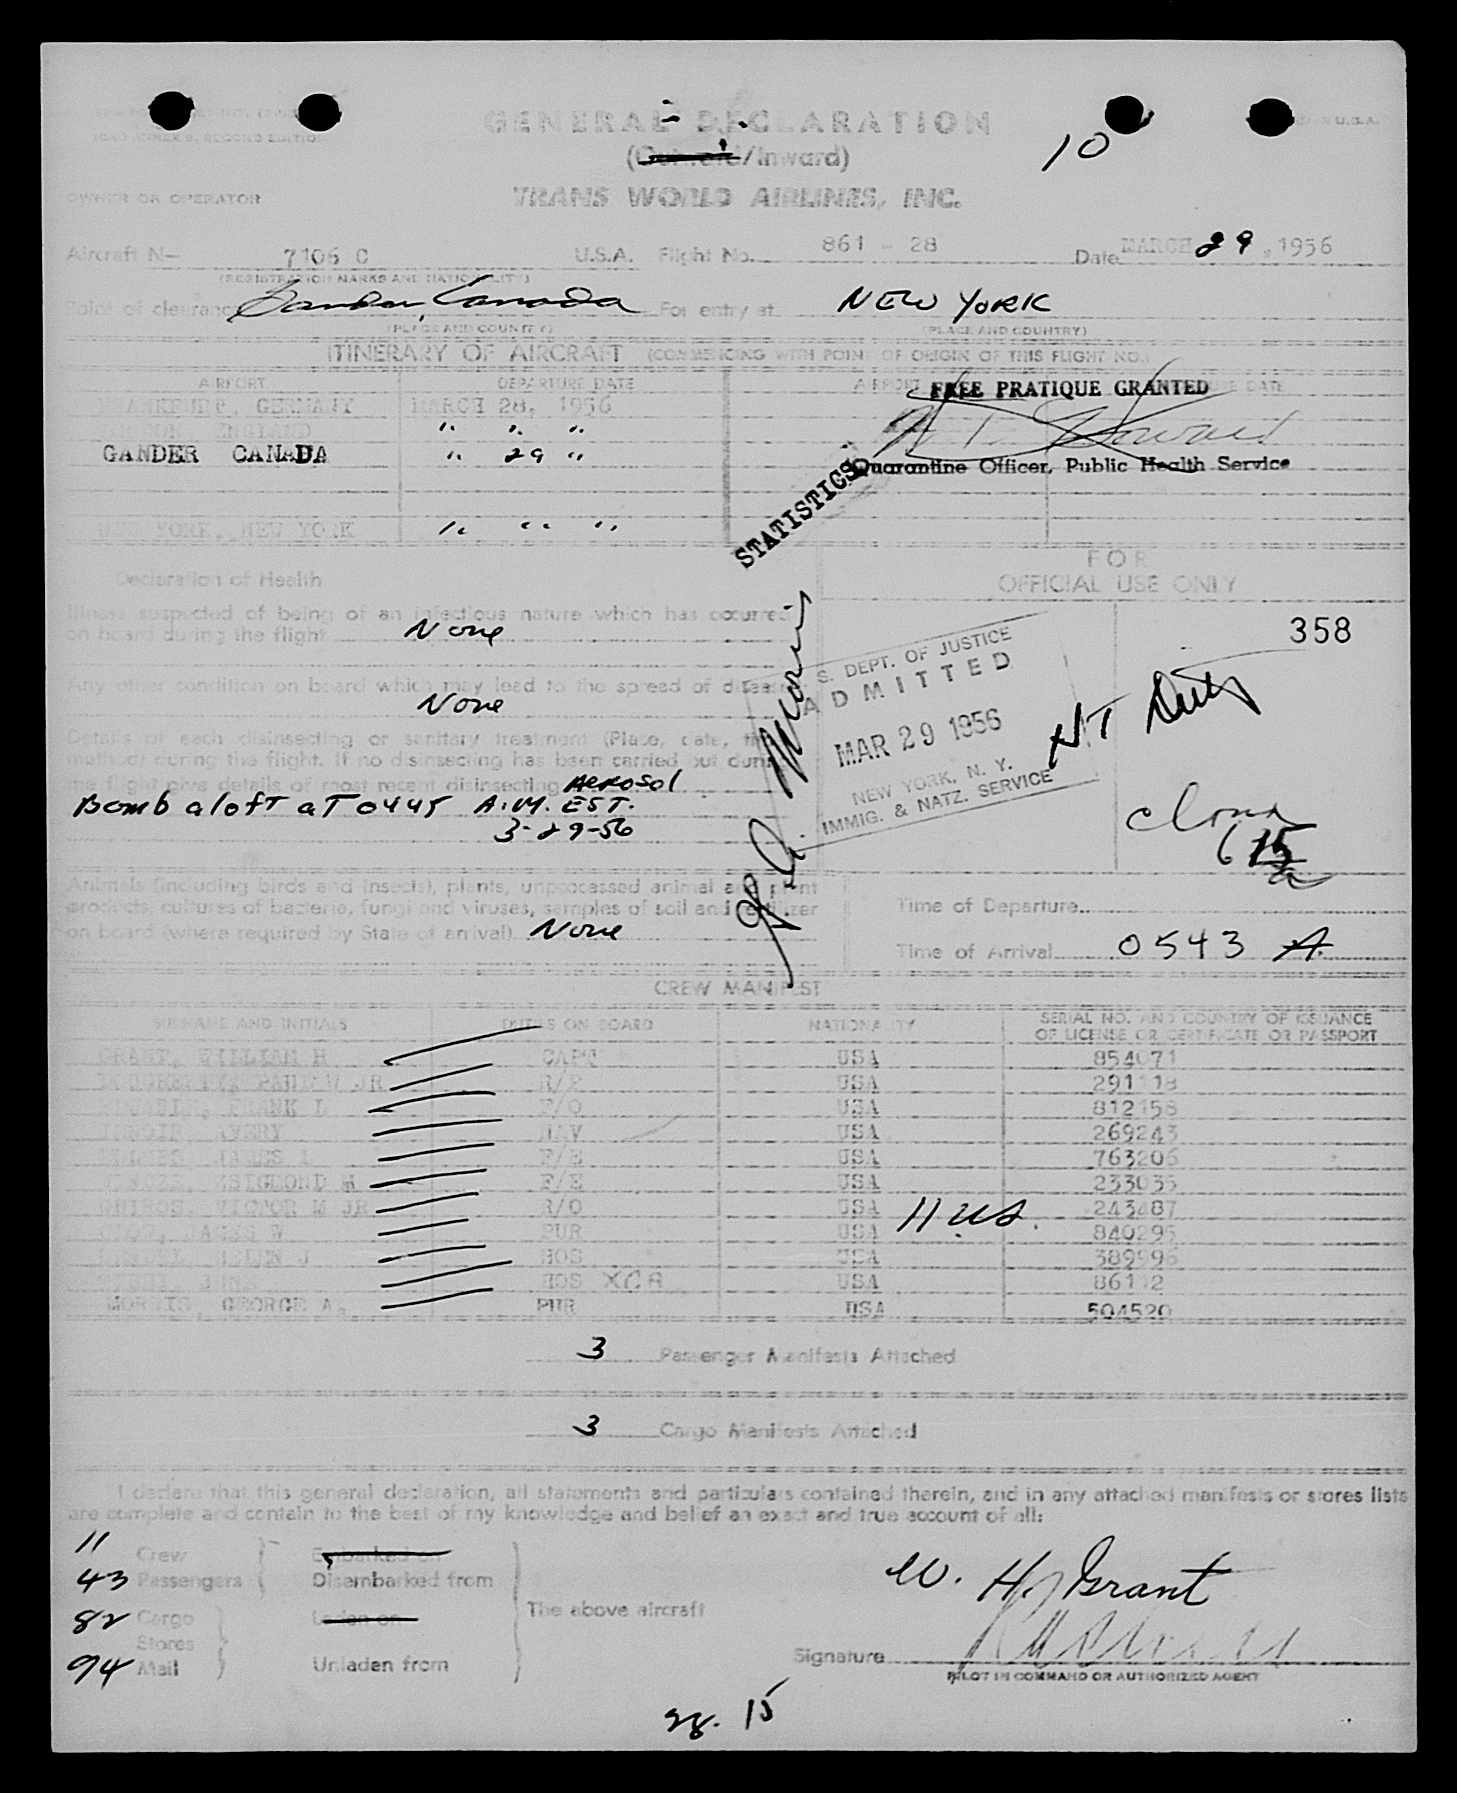 GENERAL DECLARATION
10
(Outward/Inward)
OWNER OR OPERATOR
TRANS WORLD AIRLINES, INC.
Aircraft N- 7106 C U.S.A. Flight No. 861 - 28 Date MARCH 29, 1956
(REGISTRATION MARKS AND NATIONALITY)
Point of clearance Gander, Canada For entry at NEW YORK
(PLACE AND COUNTRY) (PLACE AND COUNTRY)
ITINERARY OF AIRCRAFT (COMMENCING WITH POINT OF ORIGIN OF THIS FLIGHT NO.)
AIRPORT DEPARTURE DATE AIRPORT DATE
FREE PRATIQUE GRANTED
FRANKFURT, GERMANY MARCH 28, 1956
LONDON, ENGLAND " " "
GANDER CANADA " 29 "
Quarantine Officer, Public Health Service
STATISTICS
NEW YORK, NEW YORK " " "
FOR
OFFICIAL USE ONLY
Declaration of Health
Illness suspected of being of an infectious nature which has occurred
on board during the flight None
358
Any other condition on board which may lead to the spread of disease
None
U.S. DEPT. OF JUSTICE
ADMITTED
MAR 29 1956
NEW YORK, N. Y.
IMMIG. & NATZ. SERVICE
NT Duty
Details of each disinsecting or sanitary treatment (Place, date, time,
method) during the flight. If no disinsecting has been carried out during
the flight give details of most recent disinsecting Aerosol
Bomb aloft at 0445 A.M. EST.
3-29-56
G. A. Morris
615
a
Animals (including birds and insects), plants, unprocessed animal and plant
products, cultures of bacteria, fungi and viruses, samples of soil and fertilizer
on board (where required by State of arrival) None
Time of Departure
Time of Arrival 0543 A.
CREW MANIFEST
SURNAME AND INITIALS DUTIES ON BOARD NATIONALITY SERIAL NO. AND COUNTRY OF ISSUANCE
OF LICENSE OR CERTIFICATE OR PASSPORT
GRANT, WILLIAM H CAPT USA 854071
JR USA 291118
FRANK L F/O USA 812158
AVERY NAV USA 269243
JAMES L F/E USA 763206
F/E USA 233035
VICTOR M JR R/O USA 243487
11 US.
JAMES W PUR USA 840295
HELEN J HOS USA 389996
HOS XCA USA
MORRIS, GEORGE A. PUR USA 504520
3 Passenger Manifests Attached
3 Cargo Manifests Attached
I declare that this general declaration, all statements and particulars contained therein, and in any attached manifests or stores lists
are complete and contain to the best of my knowledge and belief an exact and true account of all:
11 Crew Embarked on
43 Passengers Disembarked from
82 Cargo Laden on The above aircraft
Stores
94 Mail Unladen from
W. H. Grant
Signature
PILOT IN COMMAND OR AUTHORIZED AGENT
15